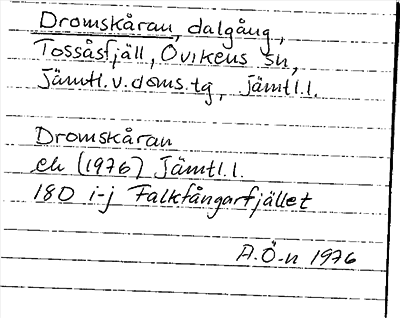 Dromskåran, dalgång,
Tossåsfjäll, Ovikens sn,
Jämtl.v.doms.tg, Jämtl.l.
Dromskåran
ek (1976) Jämtl.l.
18D i-j Falkfångarfjället
A.Ö-n 1976